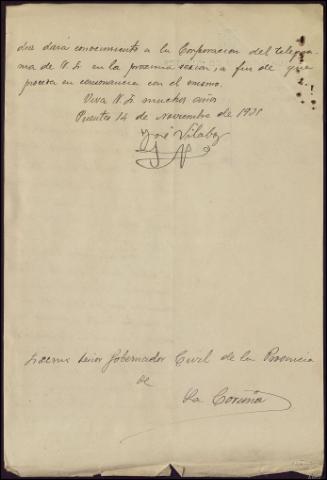 dia dará conocimiento a la Corporacion del telegra-
ma de V. E. en la proxima sesion, a fin de que
proceda en consonancia con el mismo.
Viva V. E. muchos años
Puentes 14 de Noviembre de 1931
José Vilaboy
Excmo Señor Gobernador Civil de la Provincia
de
La Coruña